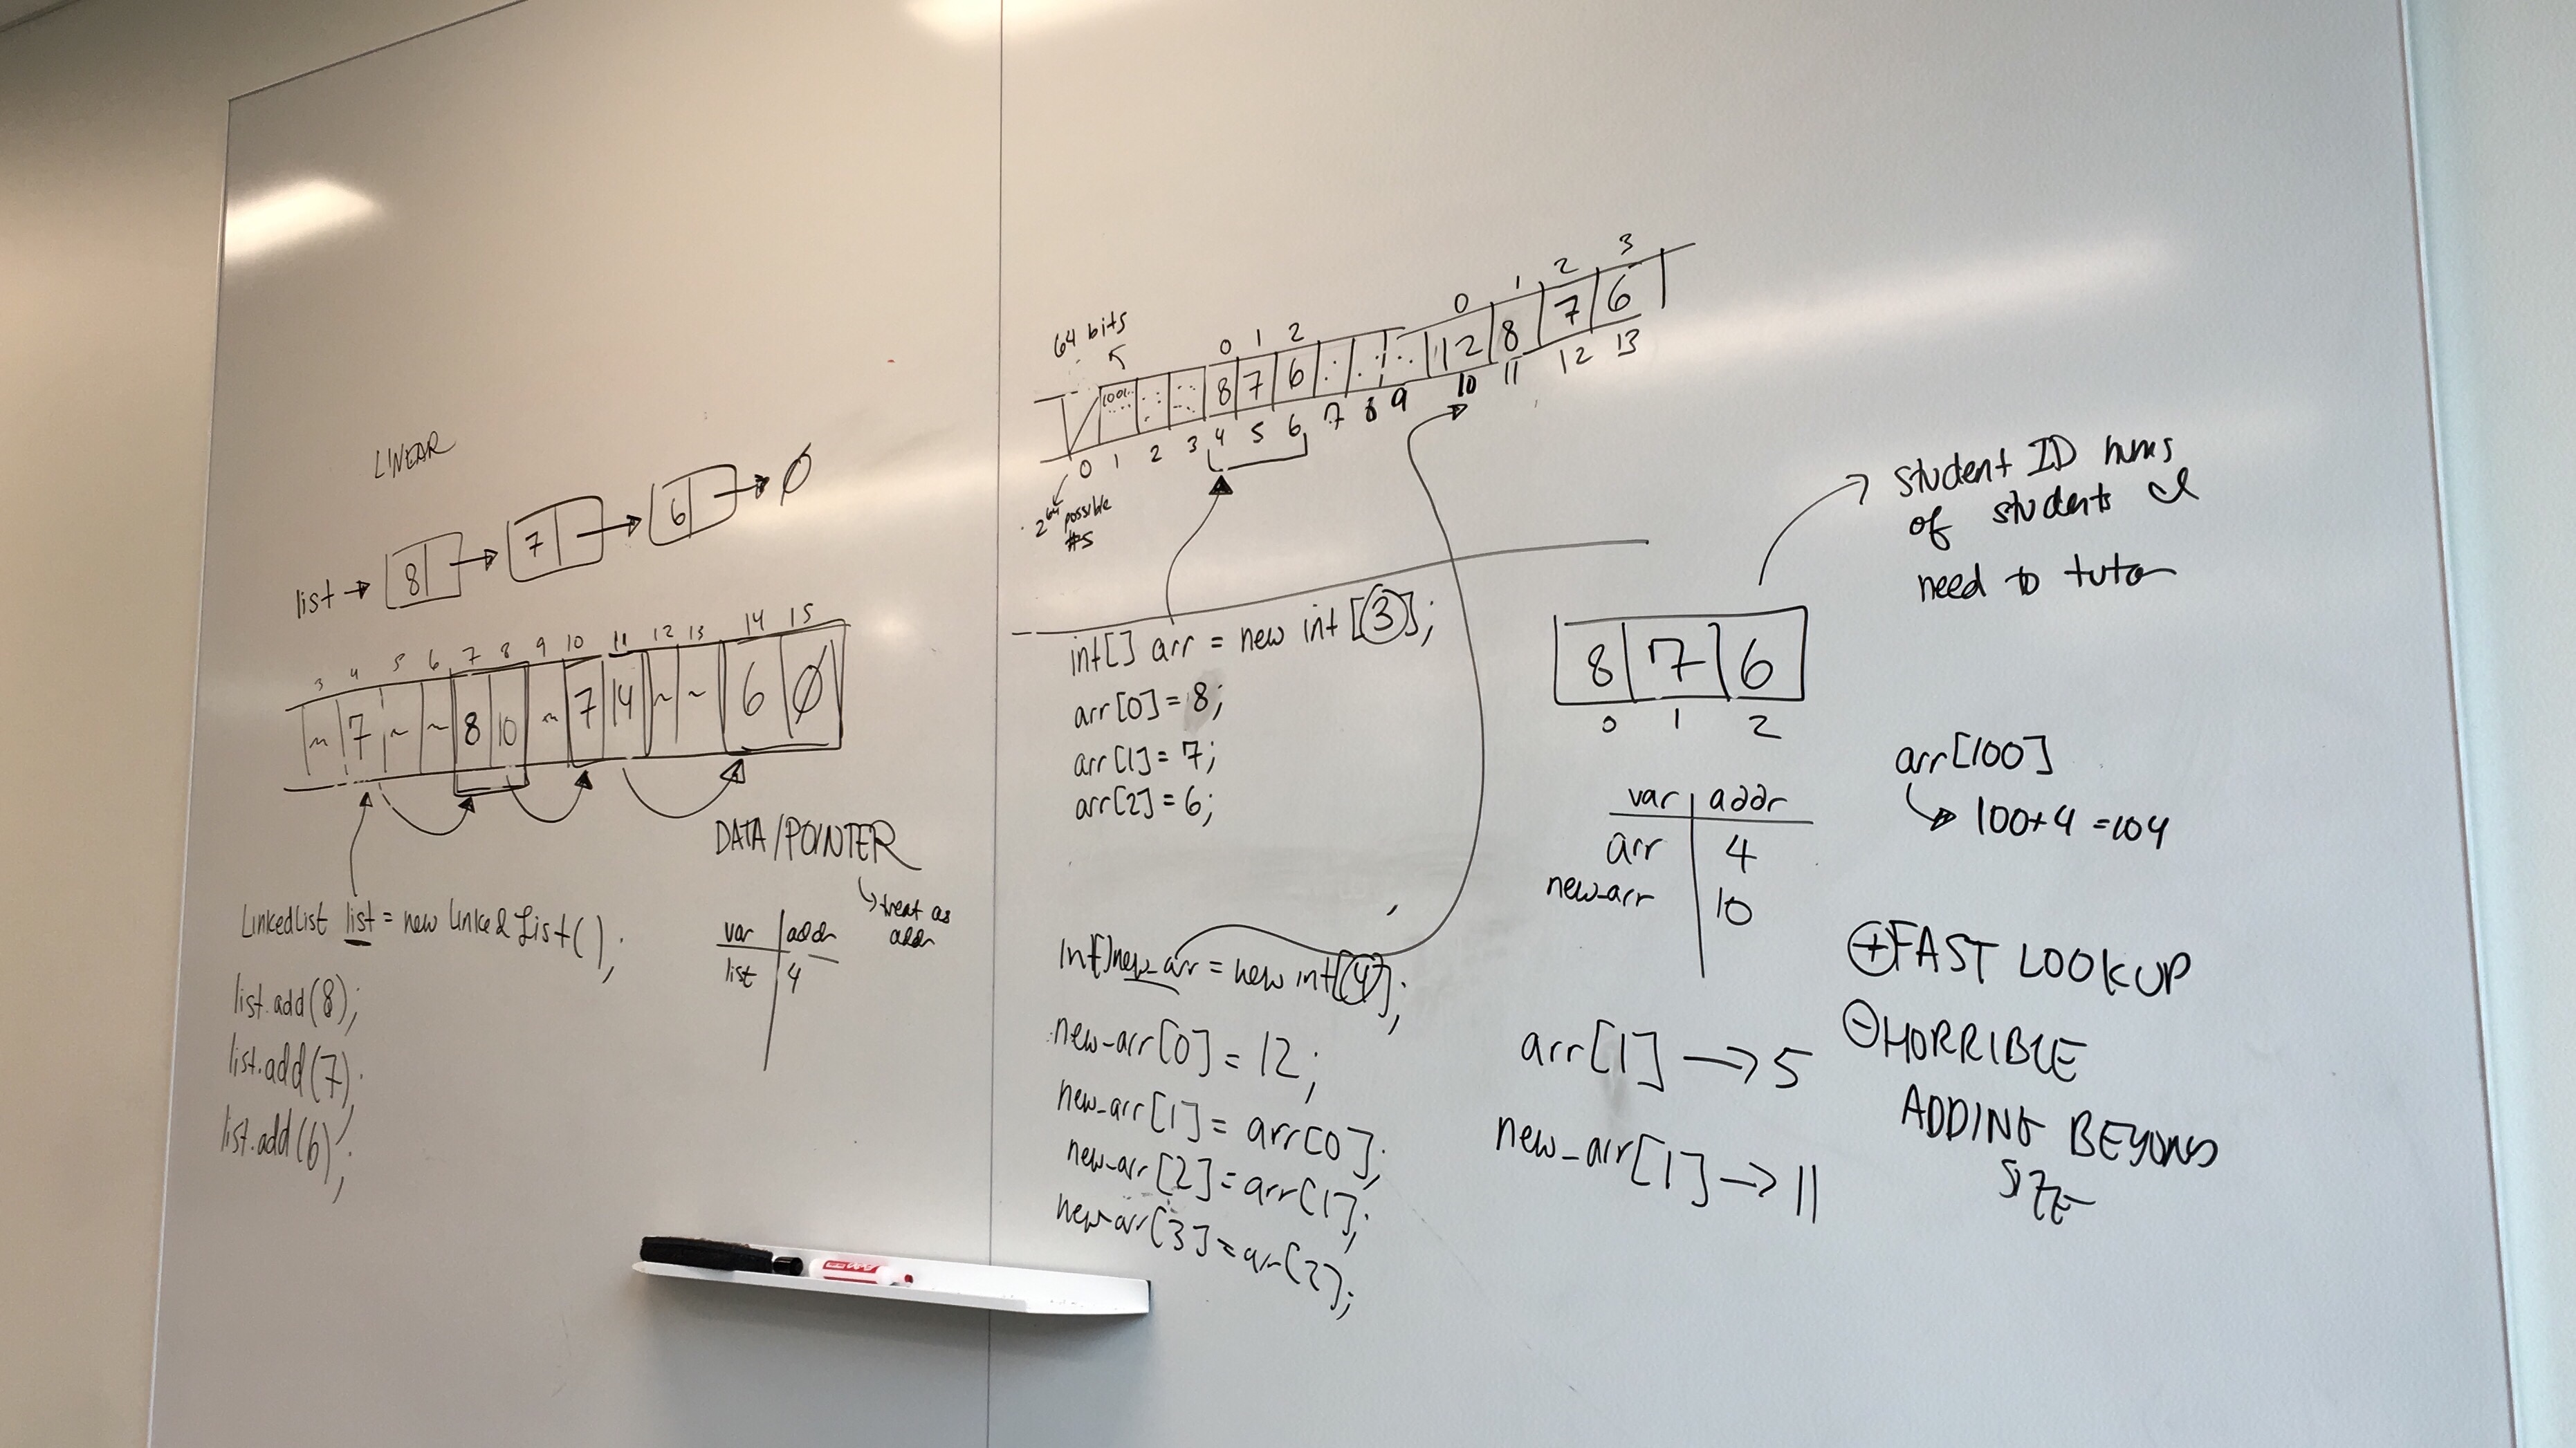 LINEAR
list → 8 → 7 → 6 → Ø
3 4 5 6 7 8 9 10 11 12 13 14 15
~ 7 ~ ~ 8 10 ~ 7 14 ~ ~ 6 Ø
DATA/POINTER
↳ treat as
addr
LinkedList list = new LinkedList();
list.add(8);
list.add(7);
list.add(6);
var addr
list 4
64 bits
0 1 2 0 1 2 3
1001.. 8 7 6 12 8 7 6
0 1 2 3 4 5 6 7 8 9 10 11 12 13
2^64 possible
#s
int[] arr = new int[3];
arr[0] = 8;
arr[1] = 7;
arr[2] = 6;
Int[] new_arr = new int[4];
new_arr[0] = 12;
new_arr[1] = arr[0];
new_arr[2] = arr[1];
new_arr[3] = arr[2];
student ID nums
of students I
need to tutor
8 7 6
0 1 2
var addr
arr 4
new_arr 10
arr[1] → 5
new_arr[1] → 11
arr[100]
↳ 100+4 = 104
⊕ FAST LOOKUP
⊖ HORRIBLE
ADDING BEYOND
SIZE